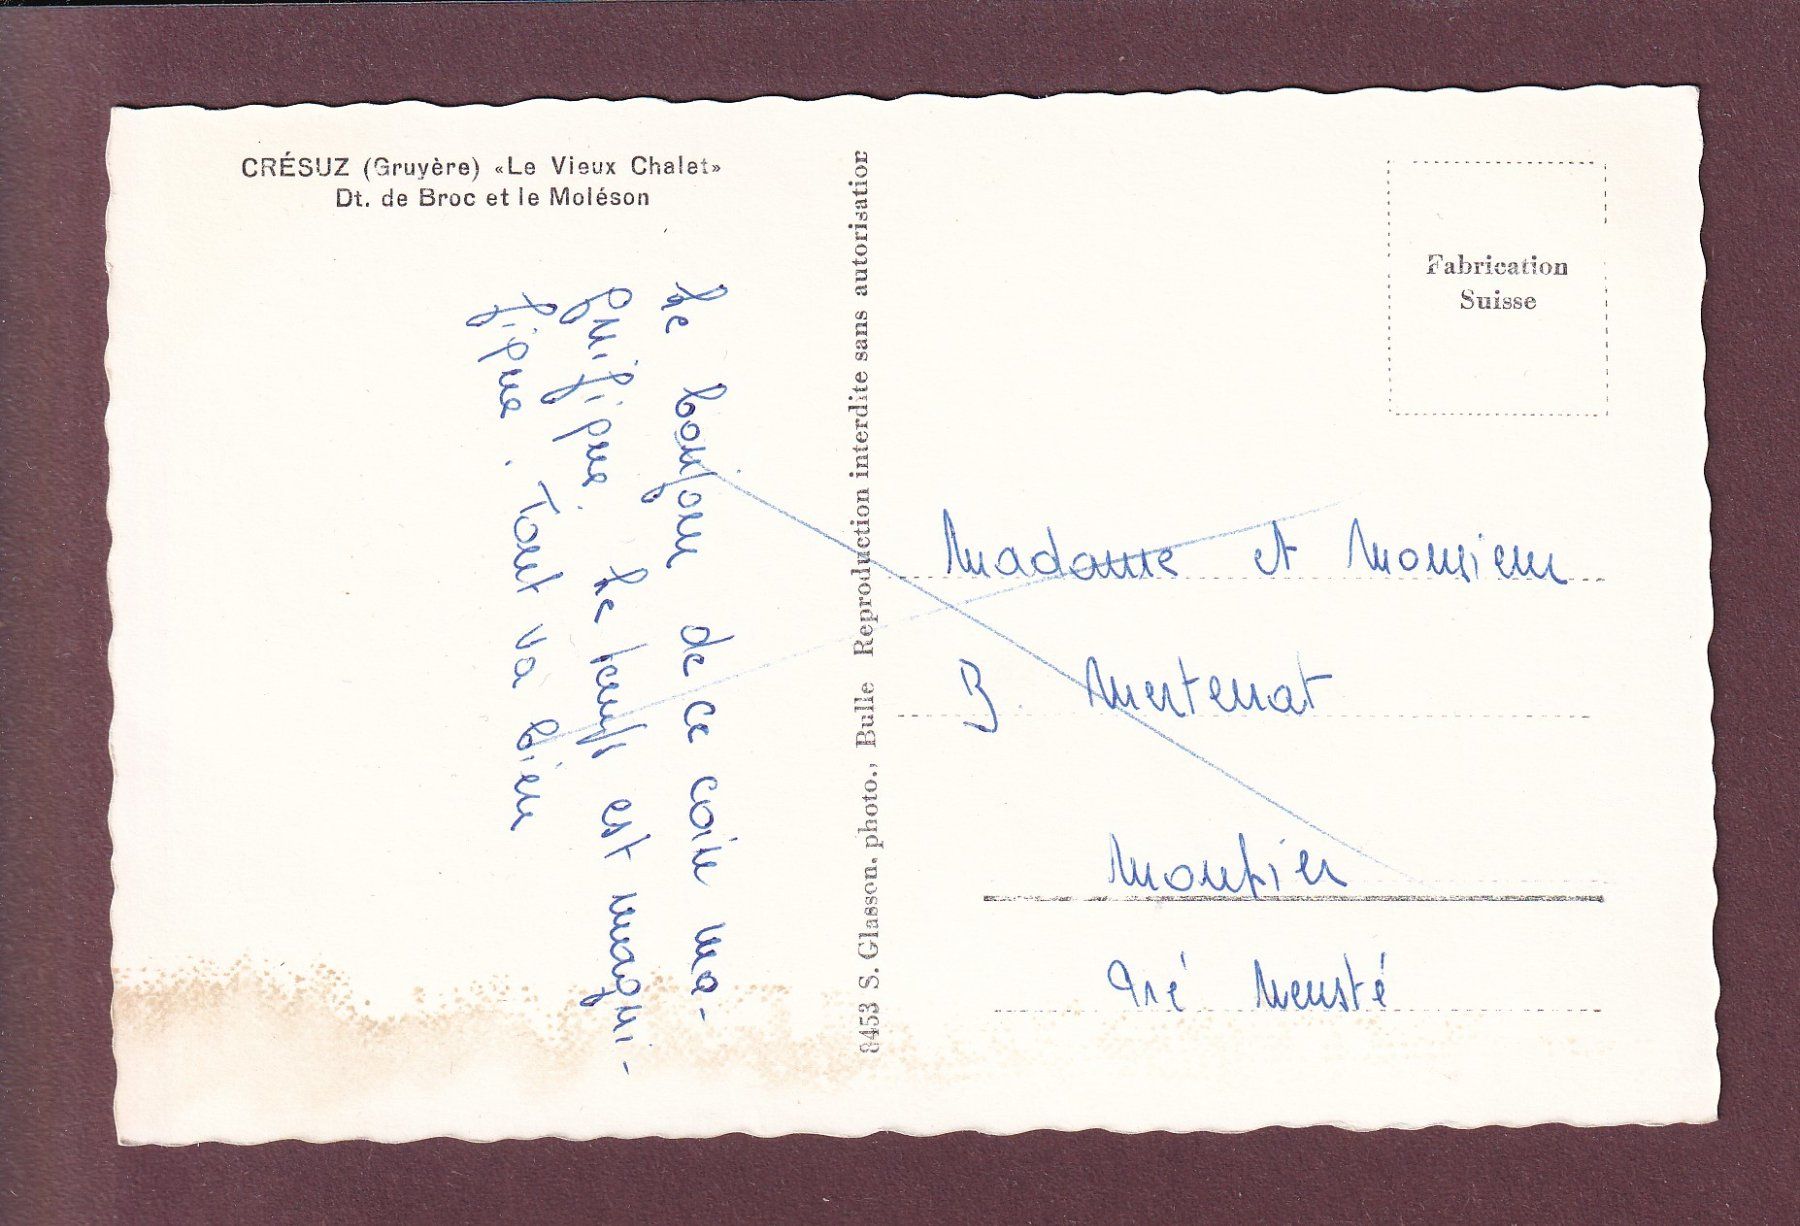 CRÉSUZ (Gruyère) «Le Vieux Chalet»
Dt. de Broc et le Moléson
Le bonjour de ce coin ma-
gnifique. Le temps est magni-
fique. Tout va bien
8453 S. Glasson, photo., Bulle Reproduction interdite sans autorisation
Fabrication
Suisse
Madame et Monsieur
B. Mertenat
Montfier
Pré Mensté